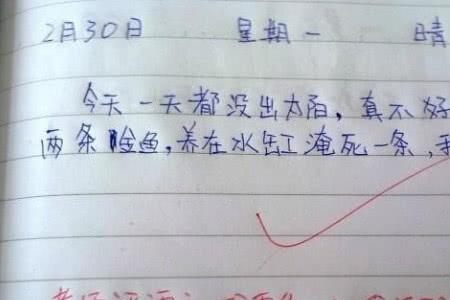 2月30日 星期一 晴
今天一天都没出太阳，真不好
两条金鱼，养在水缸淹死一条，我